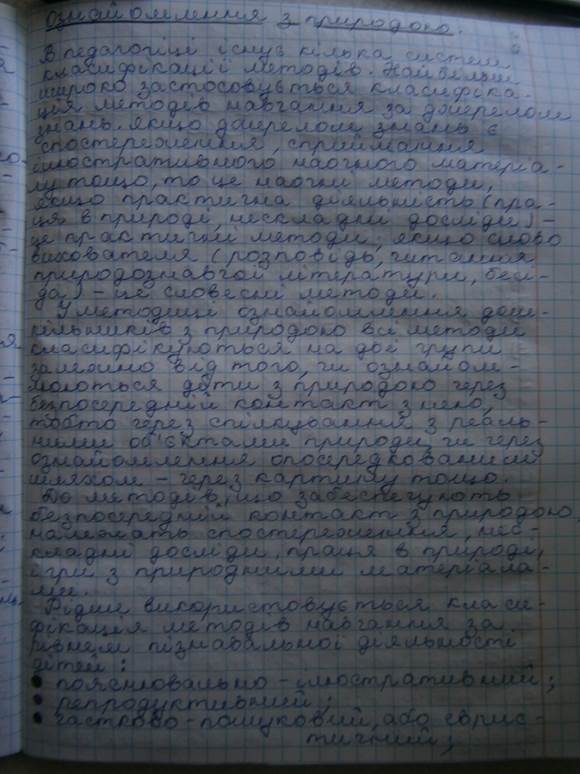 ознайомлення з природою.
В педагогіці існує кілька систем
класифікації методів. Найбільш
широко застосовується класифіка-
ція методів навчання за джерелом
знань. Якщо джерелом знань є
спостереження, сприймання
ілюстративного наочного матеріа-
лу тощо, то це наочні методи,
якщо практична діяльність (пра-
ця в природі, нескладні досліди) –
це практичні методи, якщо слово
вихователя (розповідь, читання
природознавчої літератури, бесі-
да) – це словесні методи.
У методиці ознайомлення дош-
кільників з природою всі методи
класифікуються на дві групи
залежно від того, чи ознайом-
люються діти з природою через
безпосередній контакт з нею,
тобто через спілкування з реаль-
ними об'єктами природи, чи через
ознайомлення опосередкованим
шляхом – через картину тощо.
До методів, що забезпечують
безпосередній контакт з природою
належать спостереження, нес-
кладні досліди, праця в природі,
ігри з природними матеріала-
ми.
Рідше використовується класи-
фікація методів навчання за
рівнем пізнавальної діяльності
дітей:
• пояснювально-ілюстративний;
• репродуктивний;
• частково-пошуковий, або еврис-
тичний;